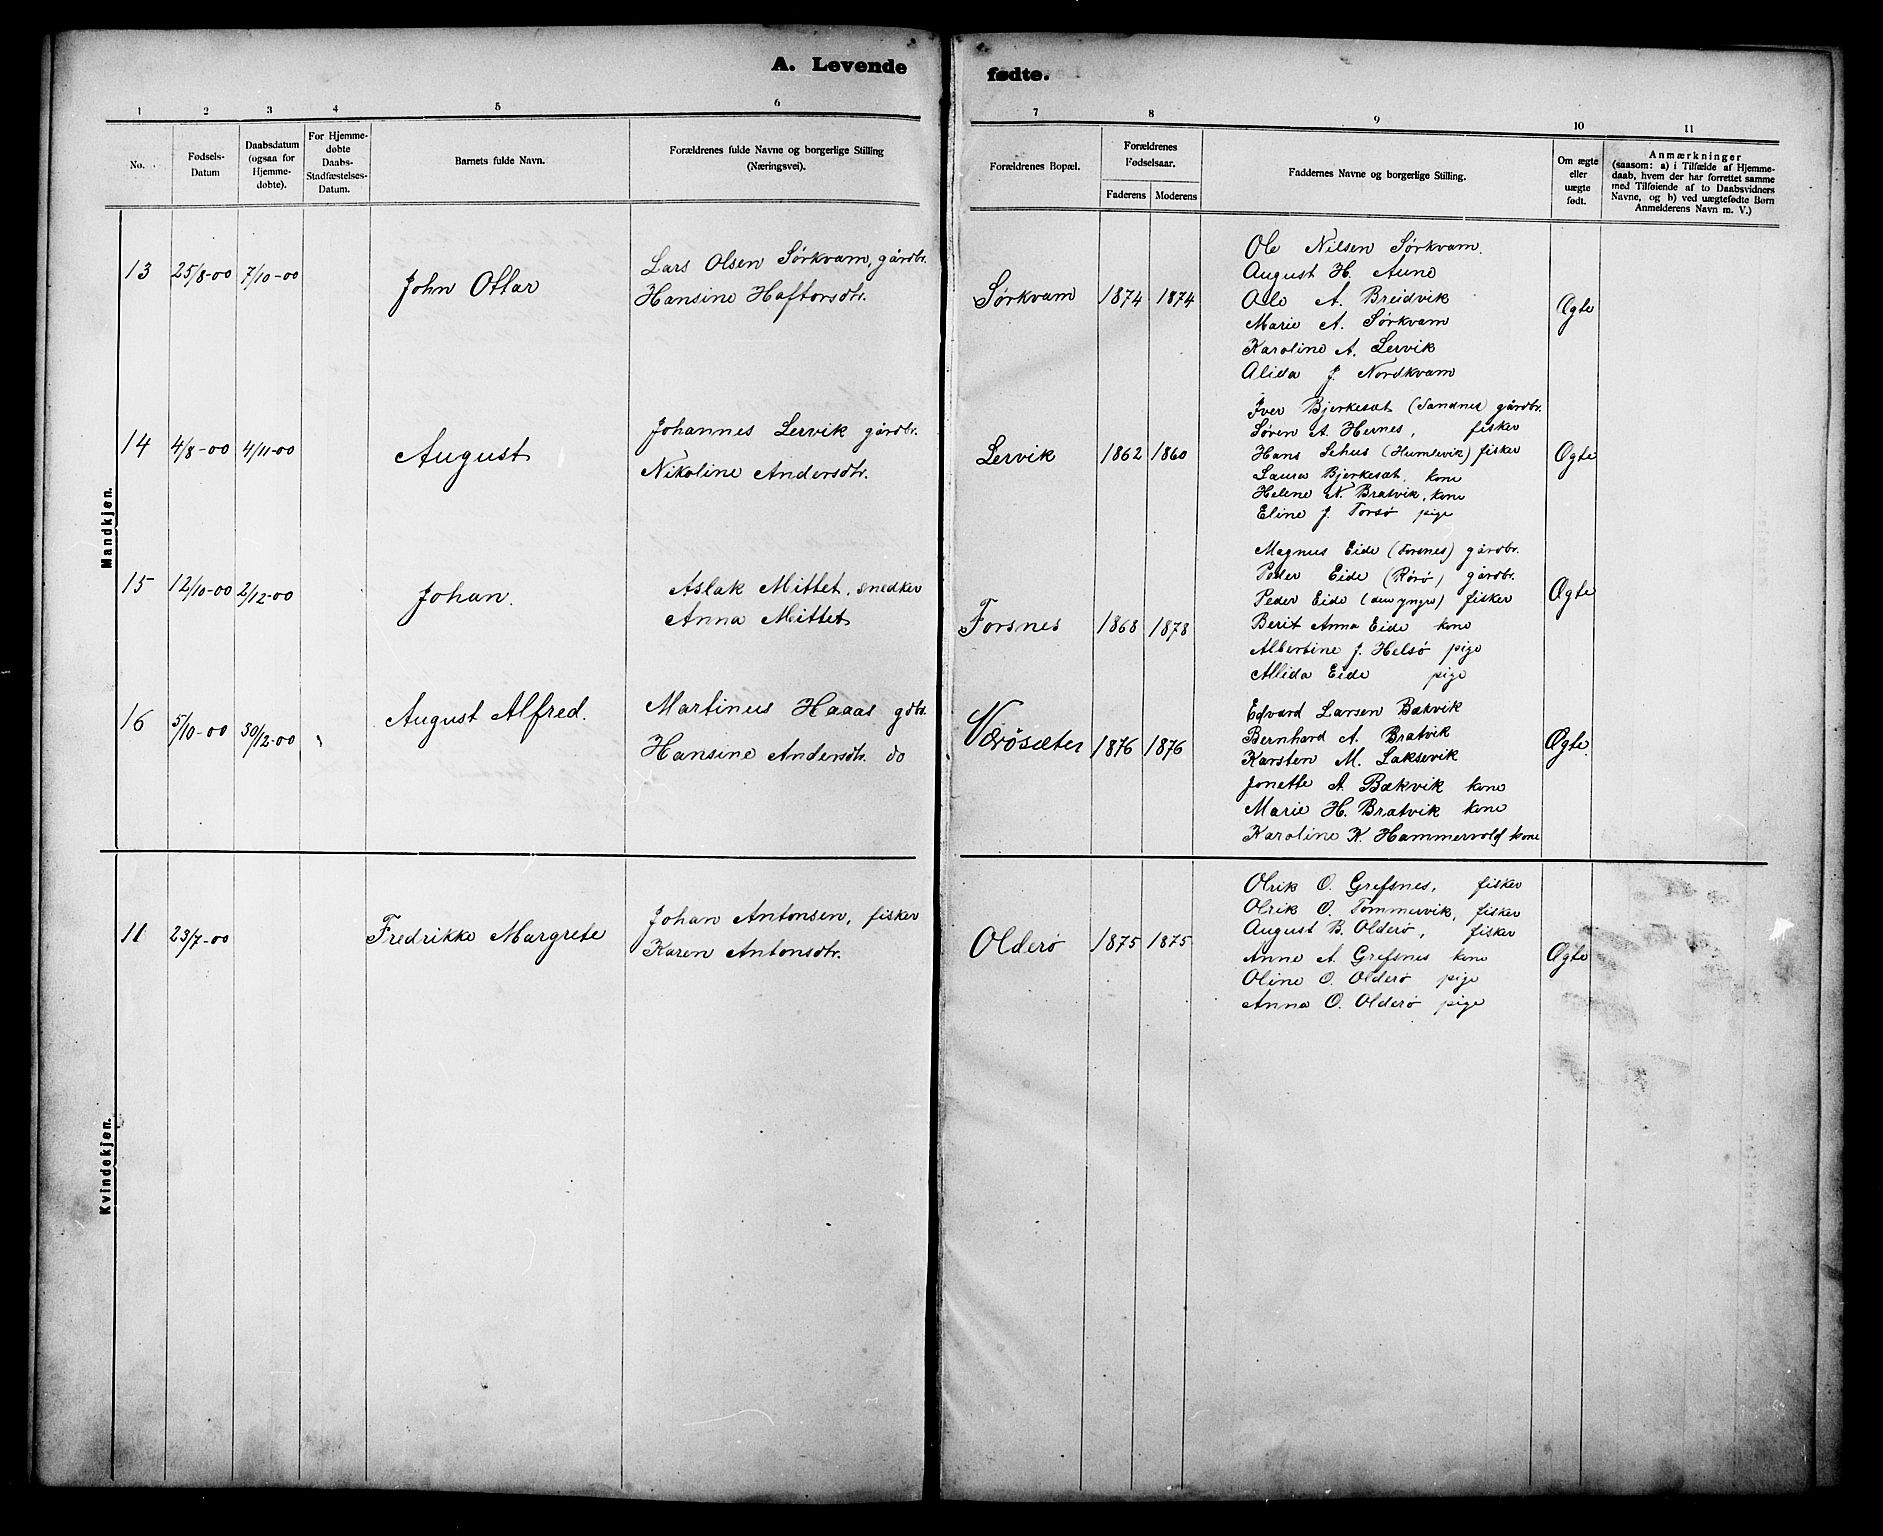 A. Levende fødte.
1 2 3 4 5 6 7 8 9 10 11
No.
Fødsels-
Datum
Daabsdatum
(ogsaa for
Hjemme-
døbte).
For Hjemme-
døbte
Daabs-
Stadfæstelses-
Datum.
Barnets fulde Navn.
Forældrenes fulde Navne og borgerlige Stilling
(Næringsvei).
Forældrenes Bopæl.
Forældrenes
Fødselsaar.
Faderens
Moderens
Faddernes Navne og borgerlige Stilling.
Om ægte
eller
uægte
født.
Anmærkninger
(saasom: a) i Tilfælde af Hjemme-
daab, hvem der har forrettet samme
med Tilføiende af to Daabsvidners
Navne, og b) ved uægtefødte Børn
Anmelderens Navn m. V.)
Mandkjøn.
13 25/8-00 7/10-00 John Ottar
Lars Olsen Sørkvam, gårdbr.
Hansine Haftorsdtr.
Sørkvam 1874 1874
Ole Nilsen Sørkvam.
August H. Aune
Ole A. Breidvik
Marie A. Sørkvam
Karoline A. Lervik
Alida J. Nordkvam
Ægte
14 4/8-00 4/11-00 August
Johannes Lervik gårdbr.
Nikoline Andersdtr.
Lervik 1862 1860
Iver Bjerkesæt (Sandnes) gårdbr.
Søren A. Hernes, fisker
Hans Sehus (Humlevik) fisker
Laura Bjerkesæt, kone
Helene N. Bratvik, kone
Eline J. Torsø pige
Ægte
15 12/10-00 2/12-00 Johan.
Aslak Mittet, snedker
Anna Mittet
Forsnes 1868 1878
Magnus Eide (Forsnes) gårdbr.
Peder Eide (Rørø) gårdbr.
Peder Eide (den yngre) fisker
Berit Anna Eide kone
Albertine J. Helsø pige
Allida Eide pige
Ægte
16 5/10-00 30/12-00 August Alfred.
Martinus Haaas gdbr.
Hansine Andersdtr. do
Værøsæter 1876 1876
Edvard Larsen Bækvik
Bernhard A. Bratvik
Karsten M. Laksevik
Jonette A. Bækvik kone
Marie H. Bratvik kone
Karoline K. Hammervold kone
Ægte.
Kvindekjøn.
11 23/7-00 Fredrikke Margrete
Johan Antonsen, fisker
Karen Antonsdtr.
Olderø 1875 1875
Olrik O. Grefsnes, fisker
Olrik O. Tømmervik, fisker
August B. Olderø, fisker
Anne A. Grefsnes kone
Oline O. Olderø pige
Anna O. Olderø pige
Ægte